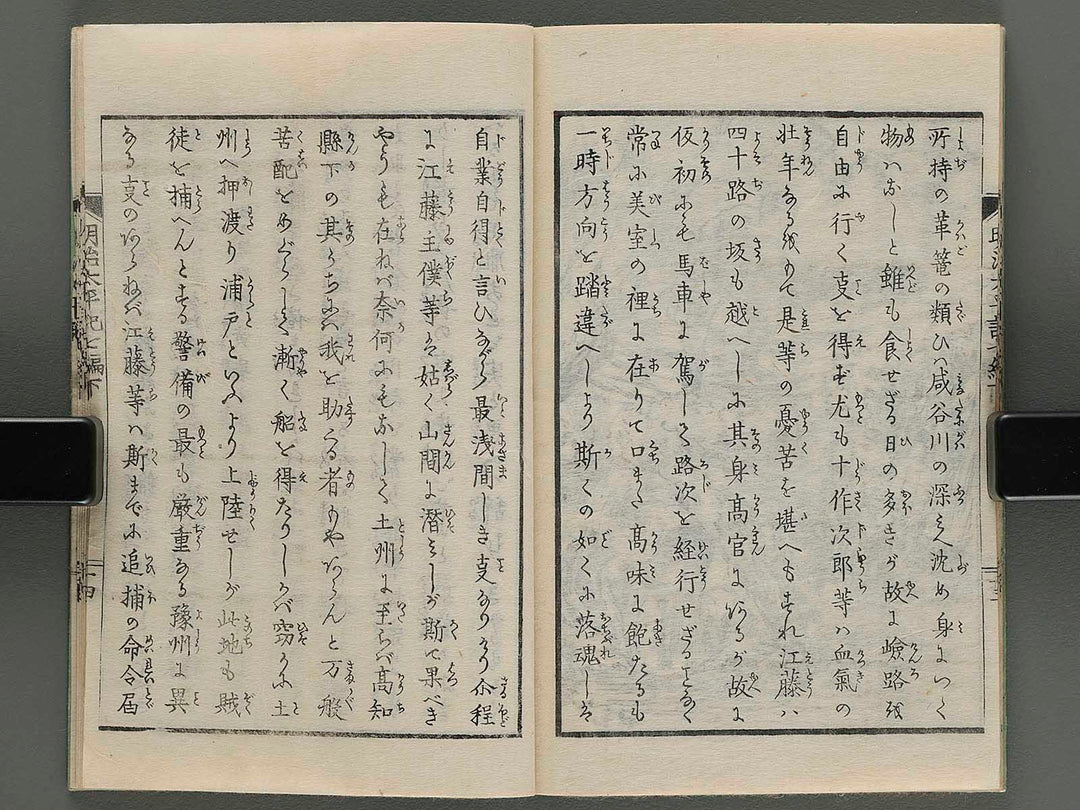 所持の革篭の類ひハ咸谷川の深え沈め身につく
物ハなしと雖も食せざる日の多きが故に嶮路を
自由に行く叓を得ず尤も十作次郎等ハ血氣の
壮年なるをもて是等の憂苦を堪へもすれ江藤ハ
四十路の坂も越へしに其身高官にいるが故に
仮初にも馬車に駕して路次を経行せざることなく
常に美室の裡に在りて口また高味に飽たるも
一時方向を踏違へしより斯くの如くに落魂しは
自業自得と言ひながら最浅間しき叓なりけり尒程
に江藤主僕等は姑く山間に潜みしが斯て果べき
やうも在ねば奈何にもなして土州に至らば高知
縣下の其うちには我を助くる者もやあらんと万般
苦配をめぐらして漸く船を得たりしかば窃かに土
州へ押渡り浦戸といふより上陸せしが此地も賊
徒を捕へんとする警備の最も厳重なる豫州に異
なる叓のあらねば江藤等ハ斯までに追捕の命令届
明治太平記七編下
十四